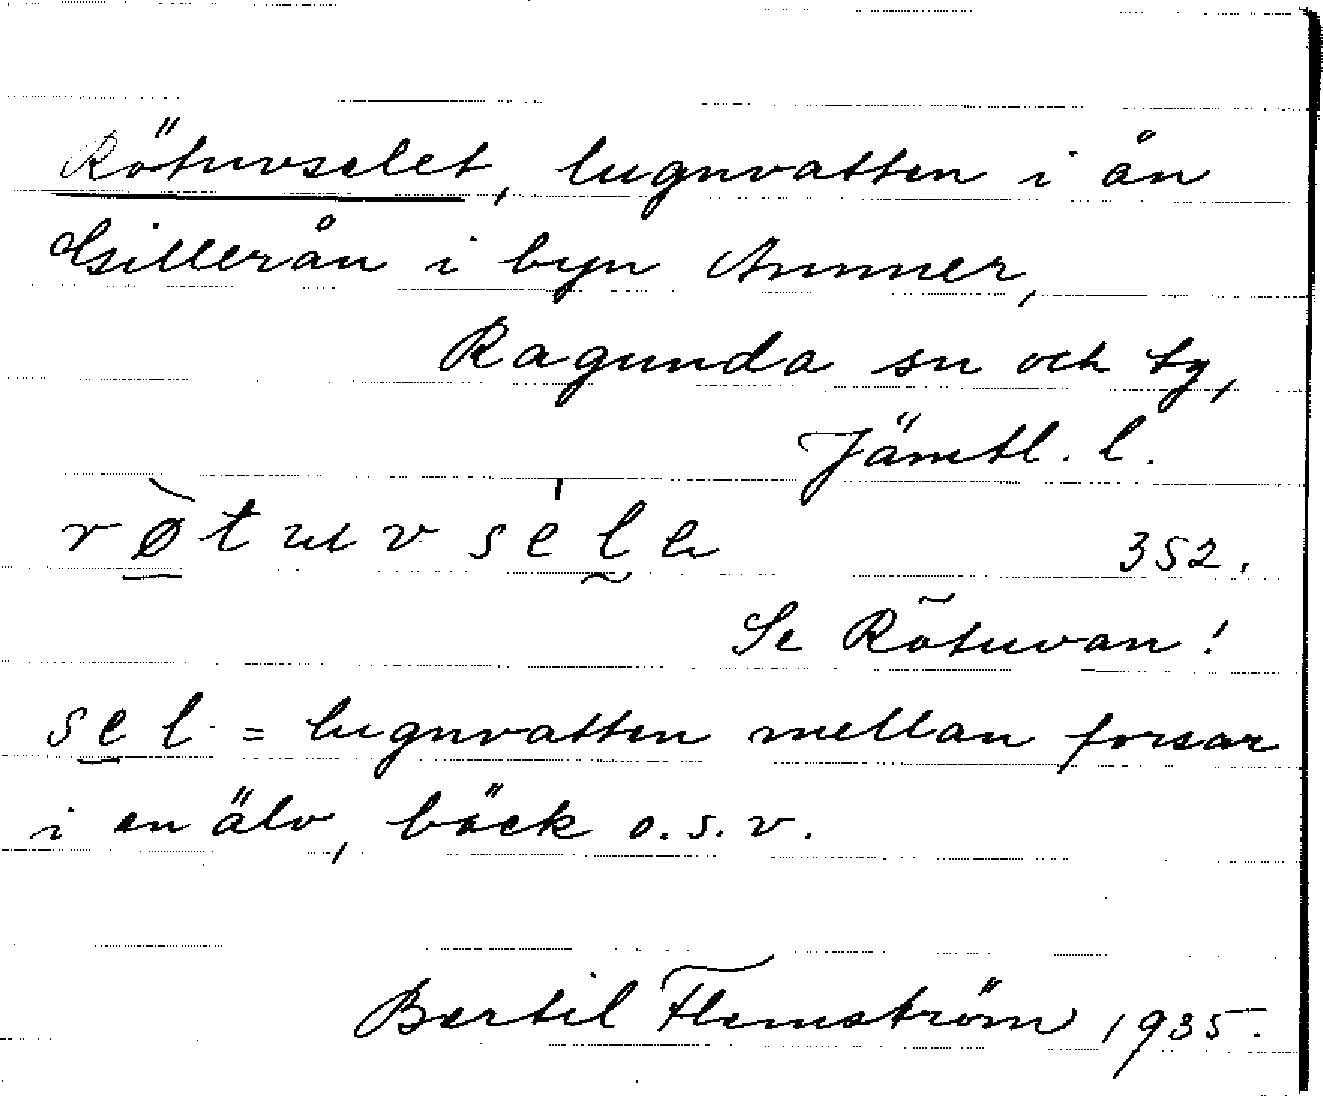 Rötuvselet, lugnvatten i ån
Gillerån i byn Ammer,
Ragunda sn och tg,
Jämtl. l.
rø̀tuvsele
352.
Se Rötuvan!
sel = lugnvatten mellan forsar
i en älv, bäck o.s.v.
Bertil Flemström 1935.